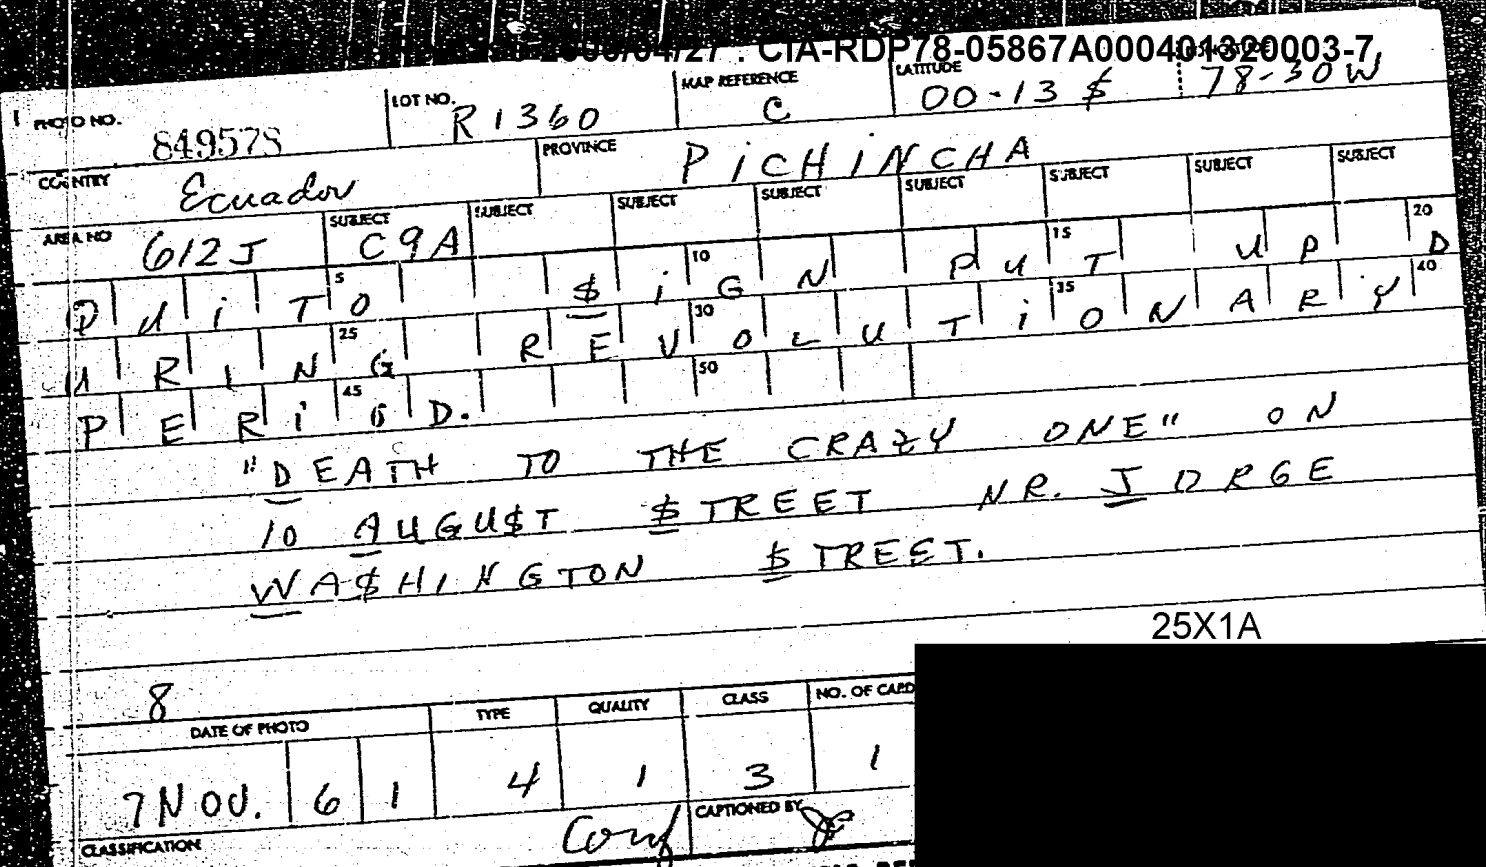 2000/04/27 : CIA-RDP78-05867A000401320003-7
PHOTO NO. 849578 LOT NO. R1360 MAP REFERENCE C LATITUDE 00-13 $ 78-30W
COUNTRY Ecuador PROVINCE PiCHiNCHA
AREA NO 612J SUBJECT C9A SUBJECT SUBJECT SUBJECT SUBJECT SUBJECT SUBJECT SUBJECT
5 10 15 20
QUiTO $iGN PUT UP D
25 30 35 40
URING REVOLUTiONARY
45 50
PERiOD.
"DEATH TO THE CRAZY ONE" ON
10 AUGU$T $TREET NR. JORGE
WA$HINGTON $TREET.
25X1A
8
DATE OF PHOTO TYPE QUALITY CLASS NO. OF CARD
7 NOV. 6 1 4 1 3 1
CLASSIFICATION Conf CAPTIONED BY